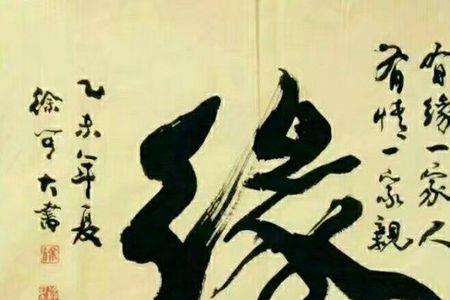 有缘一家人
有情一家親
缘
乙未年夏
徐可大書